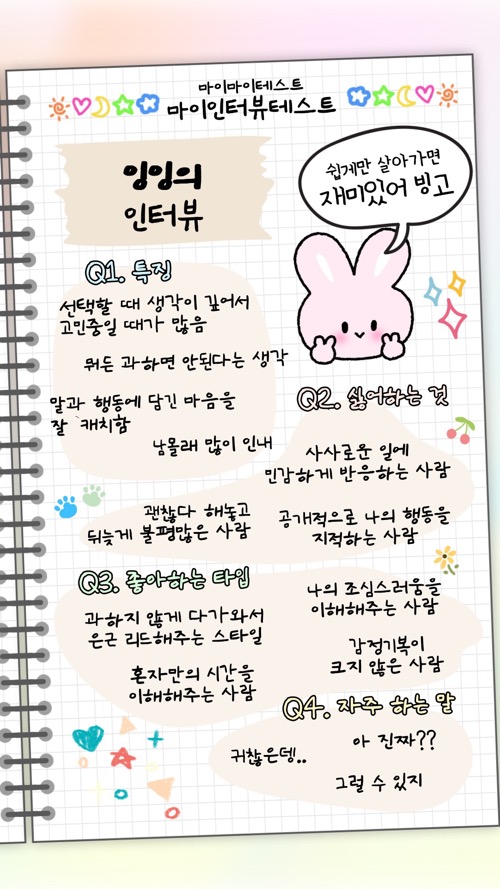 마이마이테스트
마이인터뷰테스트
잉잉의
인터뷰
쉽게만 살아가면
재미있어 빙고
Q1. 특징
선택할 때 생각이 깊어서
고민중일 때가 많음
뭐든 과하면 안된다는 생각
말과 행동에 담긴 마음을
잘 캐치함
남몰래 많이 인내
Q2. 싫어하는 것
사사로운 일에
민감하게 반응하는 사람
괜찮다 해놓고
뒤늦게 불평많은 사람
공개적으로 나의 행동을
지적하는 사람
Q3. 좋아하는 타입
과하지 않게 다가와서
은근 리드해주는 스타일
나의 조심스러움을
이해해주는 사람
혼자만의 시간을
이해해주는 사람
감정기복이
크지 않은 사람
Q4. 자주 하는 말
귀찮은뎅..
아 진짜??
그럴 수 있지